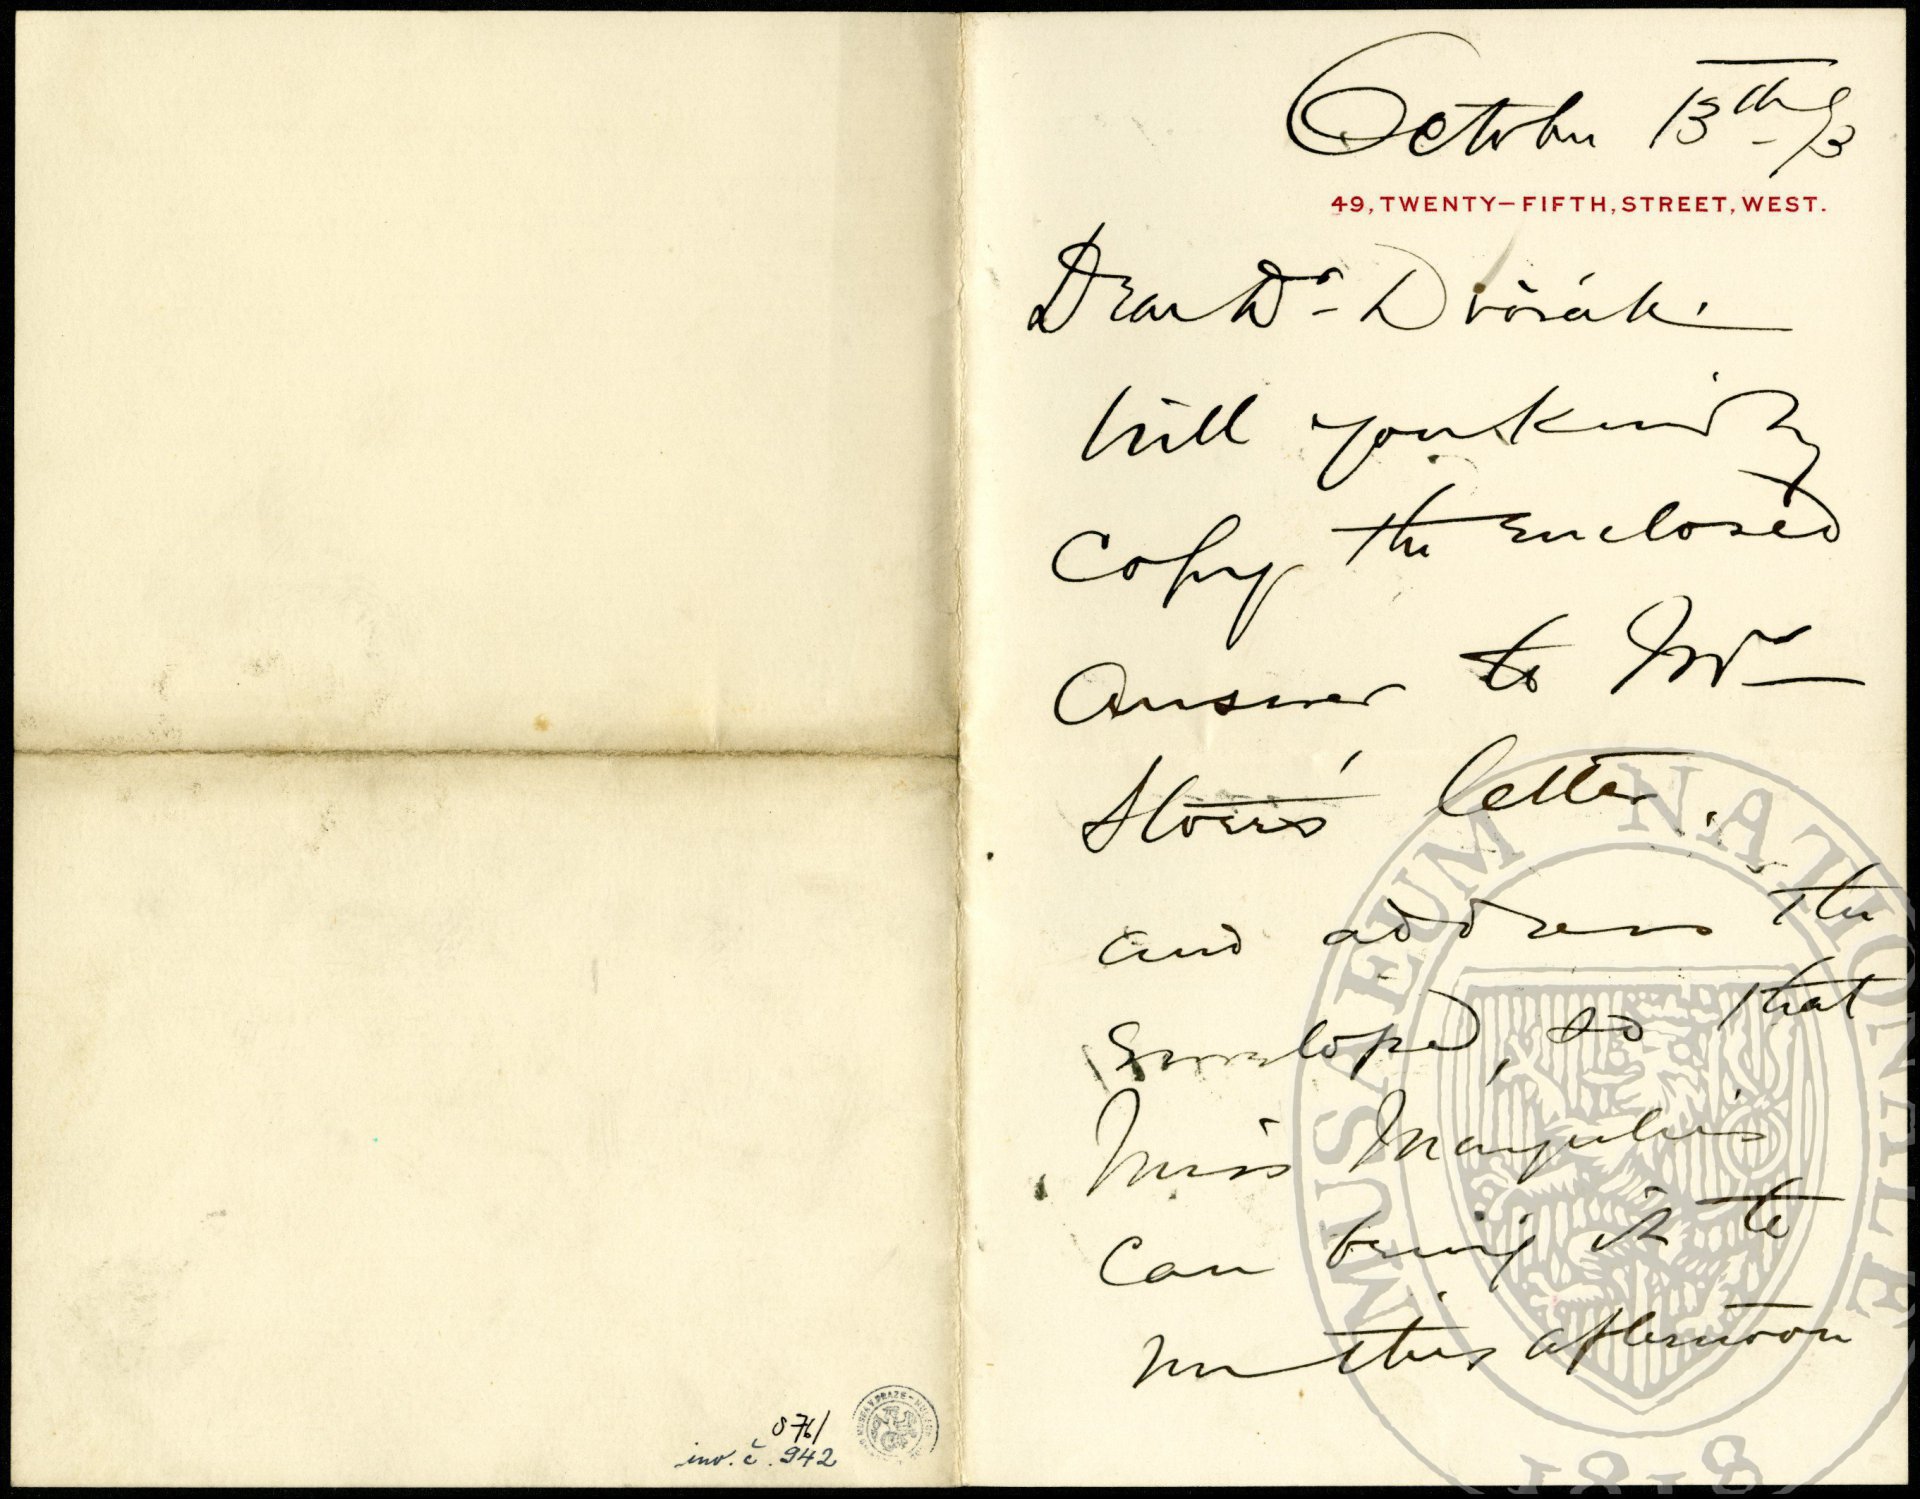 October 13th 93
49, TWENTY-FIFTH, STREET, WEST.
Dear Dr. Dvořák.
Will you kindly
copy the enclosed
answer to Mr
Storrs' letter.
and address the
enveloped, so that
Miss Margulies
can bring it to
me this afternoon
S 76/
inv. č. 942
MUSAEUM NATIONALE
1818